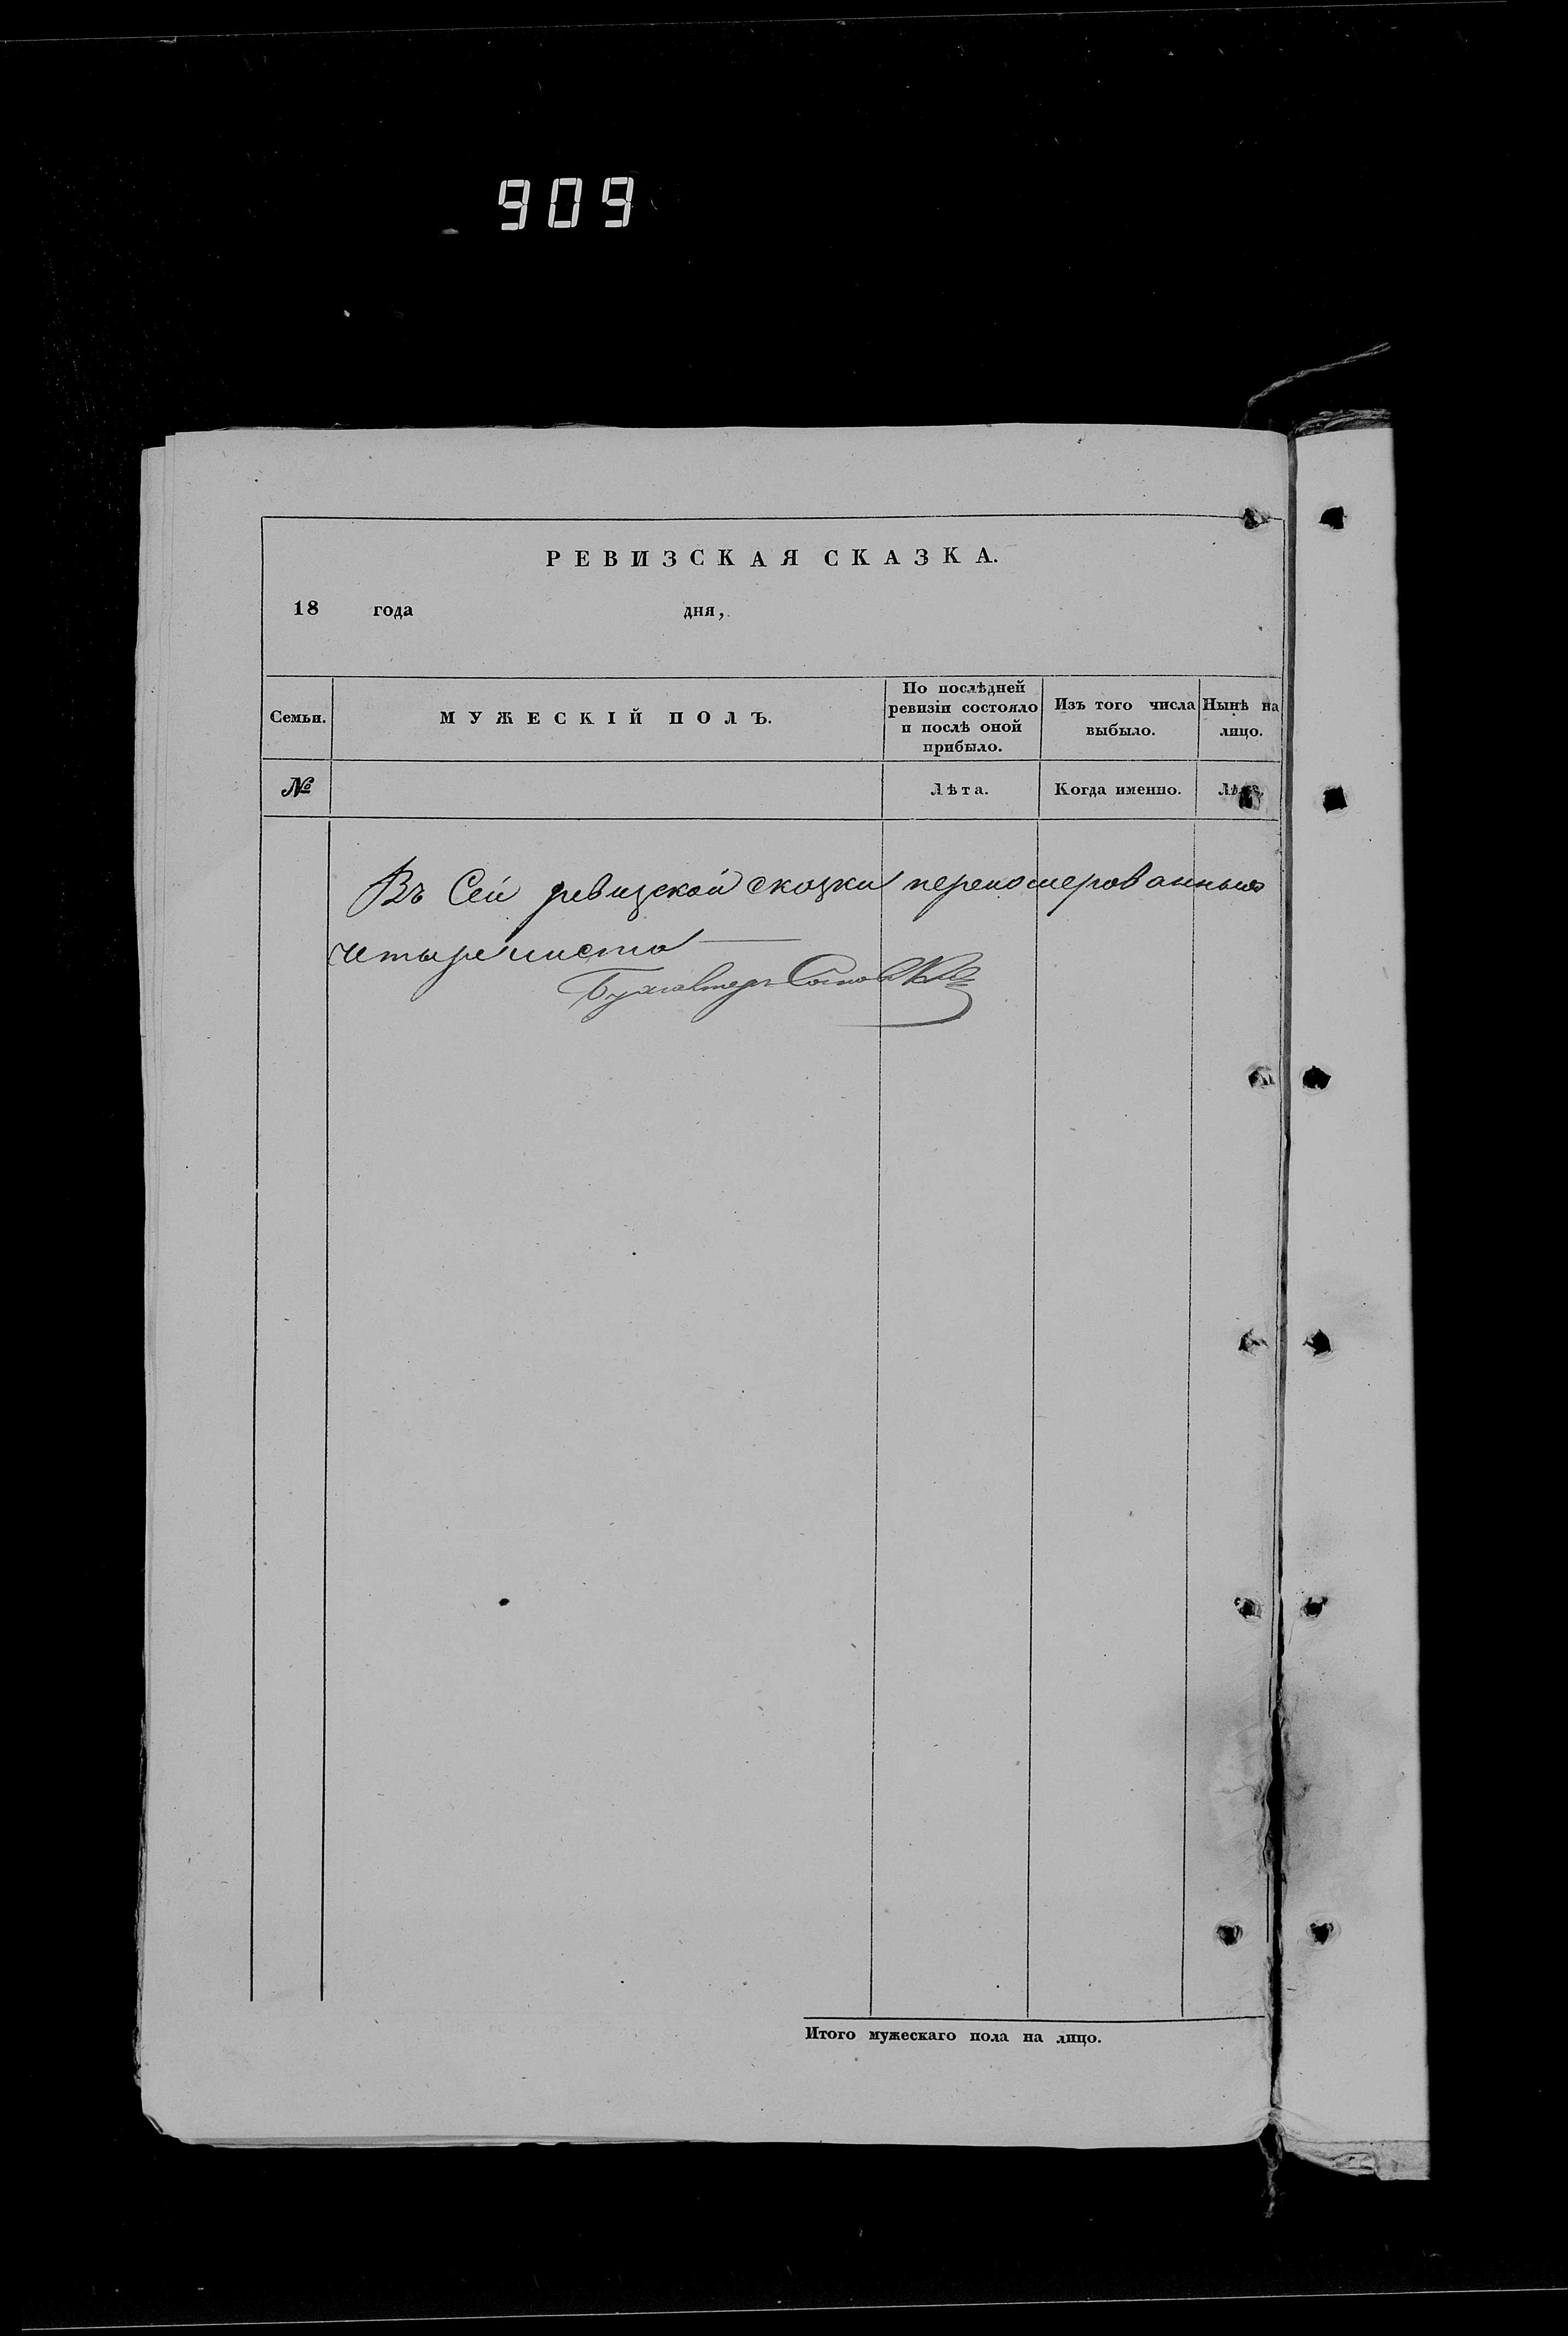 909
РЕВИЗСКАЯ СКАЗКА.
18 года дня,
Семьи. МУЖЕСКІЙ ПОЛЪ. По послѣдней ревизіи состояло и послѣ оной прибыло. Изъ того числа выбыло. Нынѣ на лицо.
№ Лѣта. Когда именно. Лѣта.
Въ Сей ревизской сказки переномерованныхъ
четыре листа
Бухгалтеръ
Итого мужескаго пола на лицо.